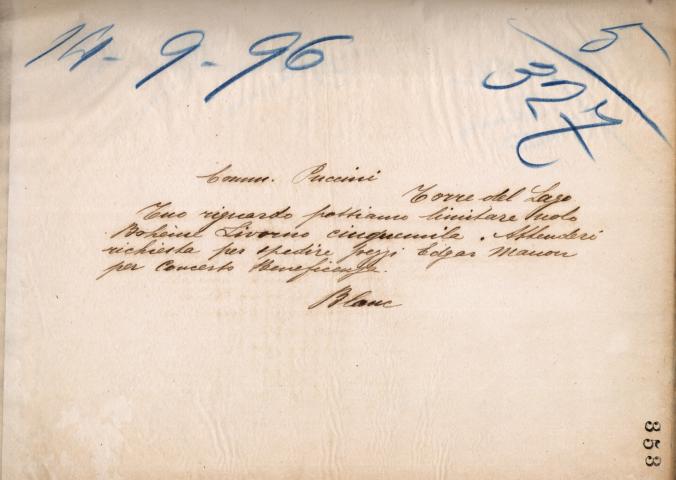 14-9-96
5/327
Comm. Puccini
Torre del Lago
Tuo riguardo possiamo limitare nolo
Bohème Livorno cinquemila. Attenderò
richiesta per spedire pezzi Edgar Manon
per Concerto Beneficenza.
Blanc
353